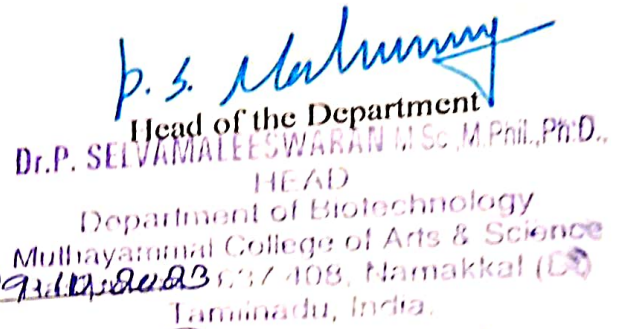 P. S.
Head of the Department
Dr.P. SELVAMALEESWARAN M.Sc.,M.Phil.,Ph.D.,
HEAD
Department of Biotechnology
Muthayammal College of Arts & Science
637 408, Namakkal (Dt)
Tamilnadu, India.